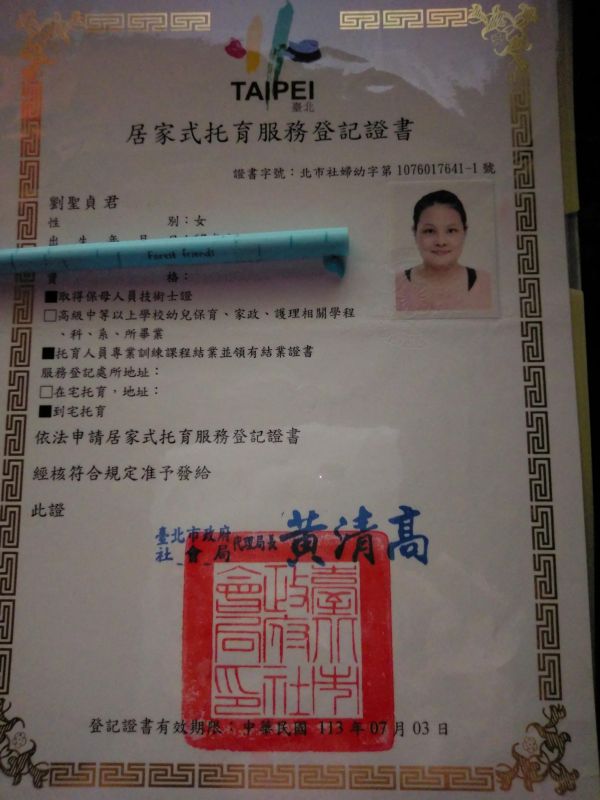 TAIPEI
臺北
居家式托育服務登記證書
證書字號：北市社婦幼字第1076017641-1號
劉聖貞君
性別：女
Forest friends
資格：
■取得保母人員技術士證
□高級中等以上學校幼兒保育、家政、護理相關學程
、科、系、所畢業
■托育人員專業訓練課程結業並領有結業證書
服務登記處所地址：
□在宅托育，地址：
■到宅托育
依法申請居家式托育服務登記證書
經核符合規定准予發給
此證
臺北市政府
社會局
代理局長
黃清高
臺北市
政府社
會局印
登記證書有效期限：中華民國 113 年 07 月 03 日